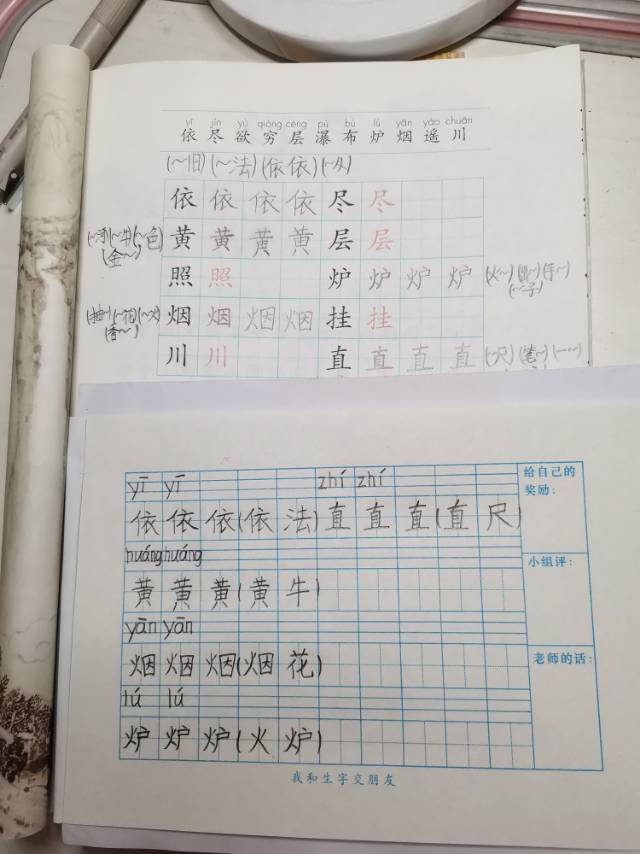 yī jìn yù qióng céng pù bù lú yān yáo chuān
依 尽 欲 穷 层 瀑 布 炉 烟 遥 川
(~旧)(~法)(依依)(~从)
依 依 依 依 尽 尽
(~牛)(~色) 黄 黄 黄 黄 层 层
(金~)
照 照 炉 炉 炉 炉 (火~)
(~子)
(~花)(~火) 烟 烟 烟 烟 挂 挂
(香~)
川 川 直 直 直 直 (~尺)(笔~)(一~)
yī yī zhí zhí
依 依 依(依 法) 直 直 直(直 尺)
huáng huáng
黄 黄 黄(黄 牛)
yān yān
烟 烟 烟(烟 花)
lú lú
炉 炉 炉(火 炉)
给自己的
奖励:
小组评:
老师的话:
我和生字交朋友